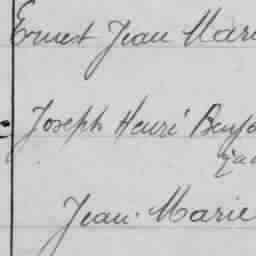 Ernest Jean Mari
Joseph Henri
Jean. Marie